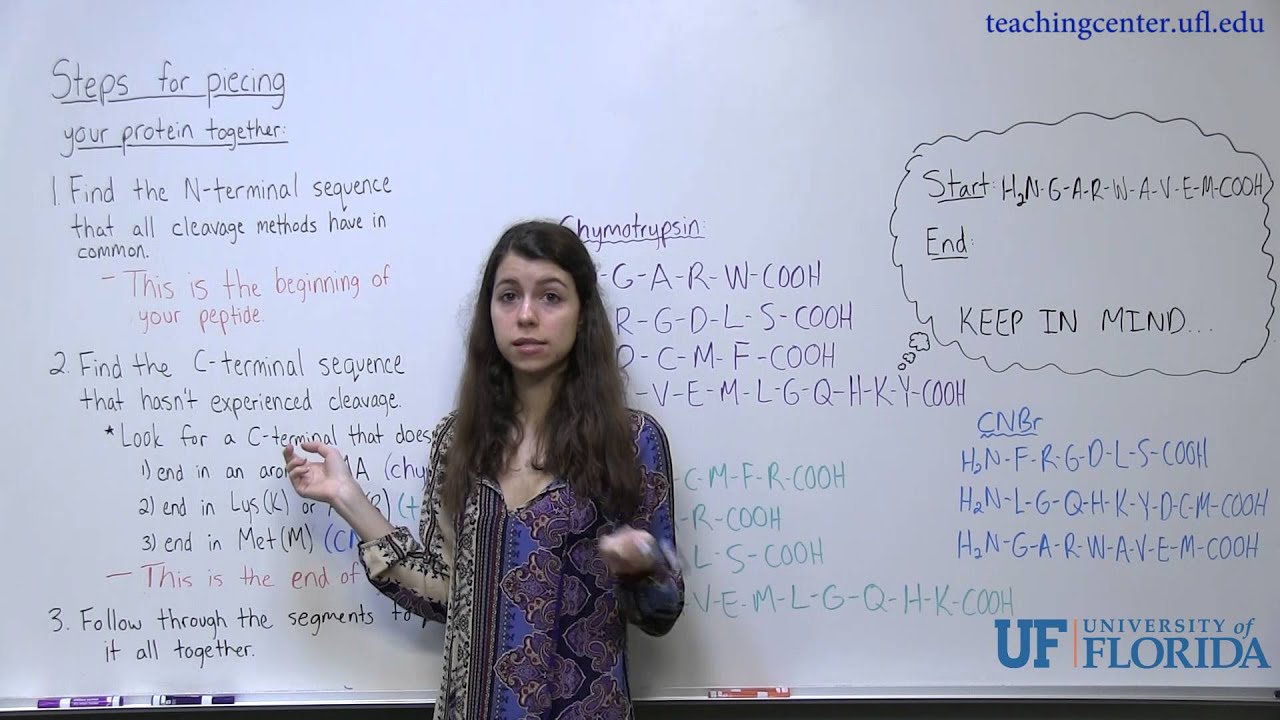 teachingcenter.ufl.edu
Steps for piecing
your protein together:
1. Find the N-terminal sequence
that all cleavage methods have in
common.
- This is the beginning of
your peptide.
2. Find the C-terminal sequence
that hasn't experienced cleavage.
* Look for a C-terminal that does
1) end in an
2) end in Lys(K) or
3) end in Met(M)
- This is the end of
3. Follow through the segments to
it all together.
Chymotrypsin:
-G-A-R-W-COOH
R-G-D-L-S-COOH
-C-M-F-COOH
-V-E-M-L-G-Q-H-K-Y-COOH
C-M-F-R-COOH
-R-COOH
L-S-COOH
V-E-M-L-G-Q-H-K-COOH
Start: H₂N-G-A-R-W-A-V-E-M-COOH
End:
KEEP IN MIND...
CNBr
H₂N-F-R-G-D-L-S-COOH
H₂N-L-G-Q-H-K-Y-D-C-M-COOH
H₂N-G-A-R-W-A-V-E-M-COOH
UF UNIVERSITY of
FLORIDA